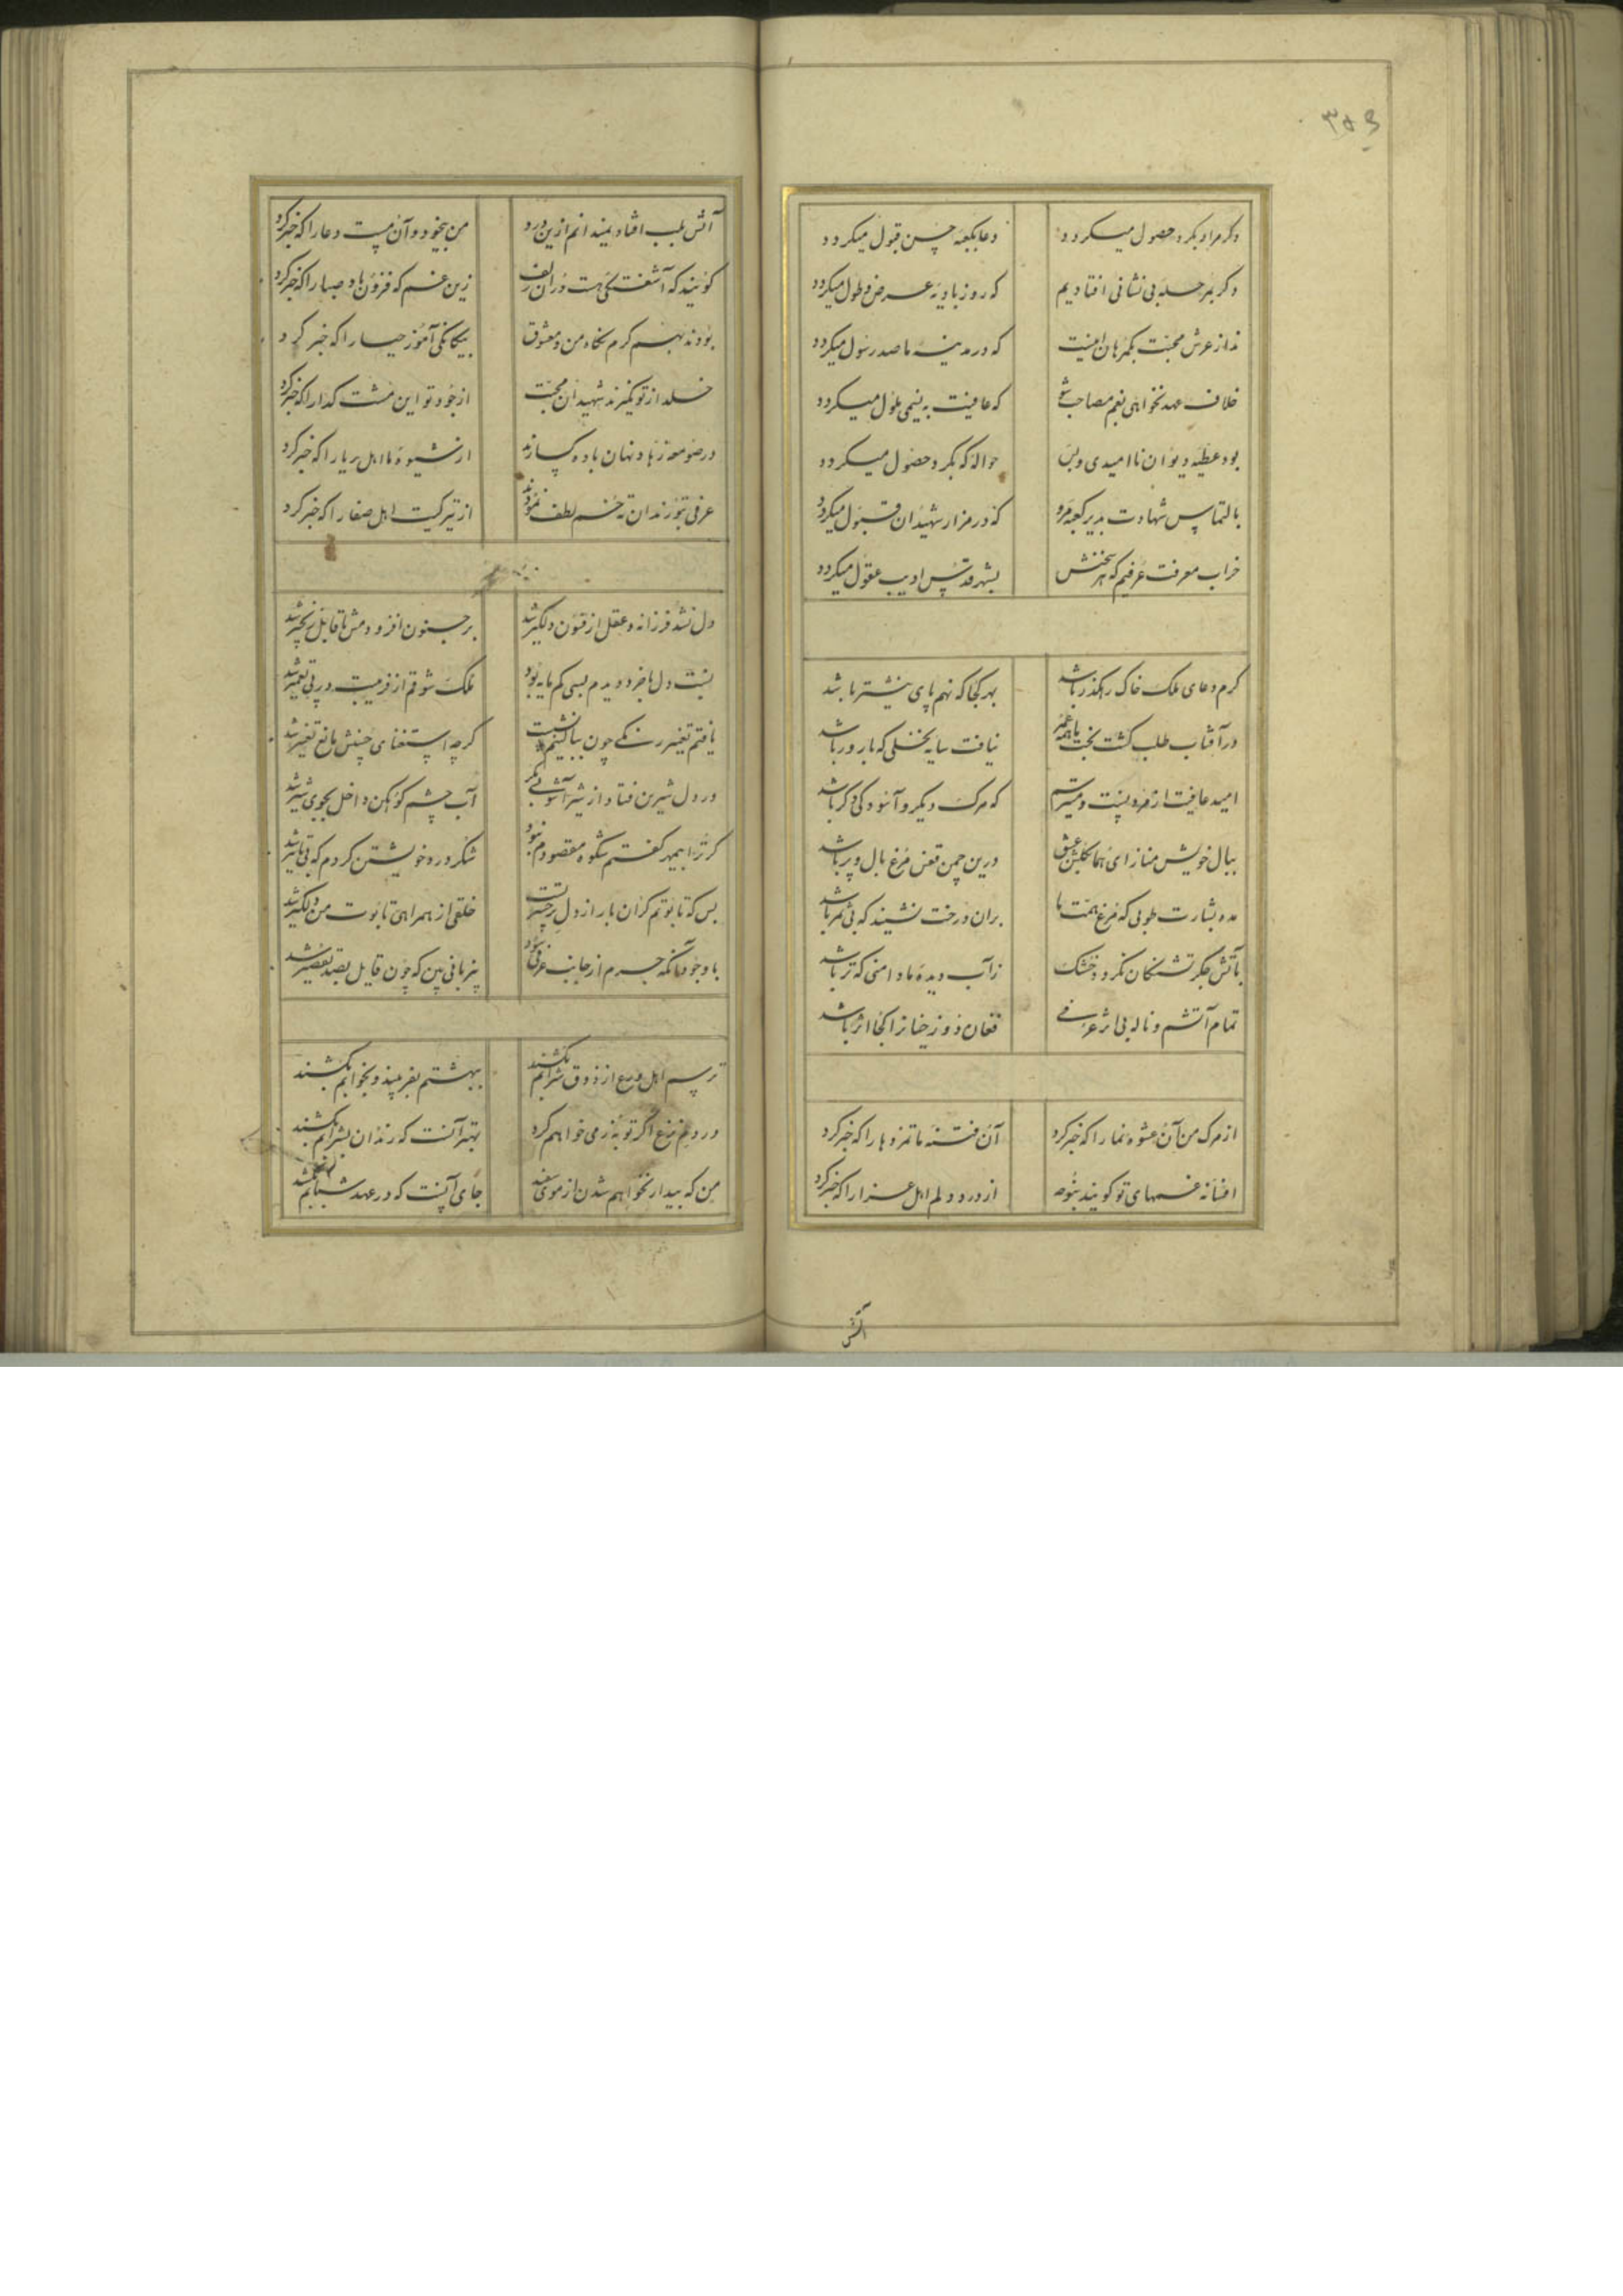 ۳۵۳
دگر مراد بگرد حصول میگردد دعا بکعبه حسن قبول میگردد
دگر بمرحله بی نشانی افتادیم که روز بادیه عرض و طول میگردد
ندا ز عرش محبت بگمرهان اینست که در مدینه ما صد رسول میگردد
خلاف عهد نخواهی بغم مصاحب شو که عافیت به نیمی ملول میگردد
بود عطیه دیوان ناامیدی و بس حواله که بگرد حصول میگردد
بالتماس شهادت بدیر کعبه مرو که در مزار شهیدان قبول میگردد
خراب معرفت عرفیم که هر سخنش بشهر قدس ادیب عقول میگردد
کرم دعای ملک خاک رهگذر باشد بهر کجا که نهم پای نیشتر باشد
در آفتاب طلب گشت بخت ما همه عمر نیافت سایه نخلی که بارور باشد
امید عافیت از مرد نیست و میترسم که مرگ دیگر و آسودگی دگر باشد
ببال خویش مناز ای هما بگلشن عشق درین چمن قفس مرغ بال و پر باشد
مده بشارت طوبی که مرغ همت ما بران درخت نشیند که بی ثمر باشد
بآتش جگر تشنگان نگردد خشک ز آب دیده ما دامنی که تر باشد
تمام آتشم و ناله بی اثر عرفی فغان دوزخیانرا کجا اثر باشد
از مرگ من آن عشوه نما را که خبر کرد آن فتنه ماتمزدها را که خبر کرد
افسانه غمهای تو گویند بنوحه از درد دلم اهل عزا را که خبر کرد
آتش
آتش بلب افتاد نمیدانم ازین درد من بیخود و آن مست دعا را که خبر کرد
گویند که آشفتگی هست در آن زلف زین غم که فزون باد صبا را که خبر کرد
بودند بهم گرم نگاه من و معشوق بیگانگی آموز حیا را که خبر کرد
خلد از تو بگیرند شهیدان محبت از جود تو این مشت گدا را که خبر کرد
در صومعه زهاد نهان باده گسارند از شیوه ما اهل ریا را که خبر کرد
عرفی بتو رندان ته خم لطف نمودند از تیرگیت اهل صفا را که خبر کرد
دل نشد فرزانه و عقل از فنون دلگیر شد بر جنون افزودمش تا قابل زنجیر شد
نیست دل تا خرد دیدم بسی کم مایه بود ملک شوقم از فریبت در پی تعمیر شد
یافتم تغییر رنگی چون ببالینم نشست گرچه استغنای حسنش مانع تغییر شد
در دل شیرین فتاد از شیر آشوبی دگر آب چشم کوهکن داخل بجوی شیر شد
گر ترا بیمهر گفتم شکوه مقصودم نبود شکر درد خویشتن کردم که بی تاثیر شد
بس که تابوتم گران بار از دل پر حسرتست خلقی از همراهی تابوت من دلگیر شد
با وجود آنکه جرم از جانب عرفی نبود بیزبانی بین که چون قایل بصد تقصیر شد
ترسم اهل ورع از ذوق شرابم بکشند ببهشتم بفریبند و بخوابم بکشند
در دم نزع اگر توبه ز می خواهم کرد بهتر آنست که رندان بشرابم بکشند
من که بیدار نخواهم شدن از موی سفید جای آنست که در عهد شبابم بکشند